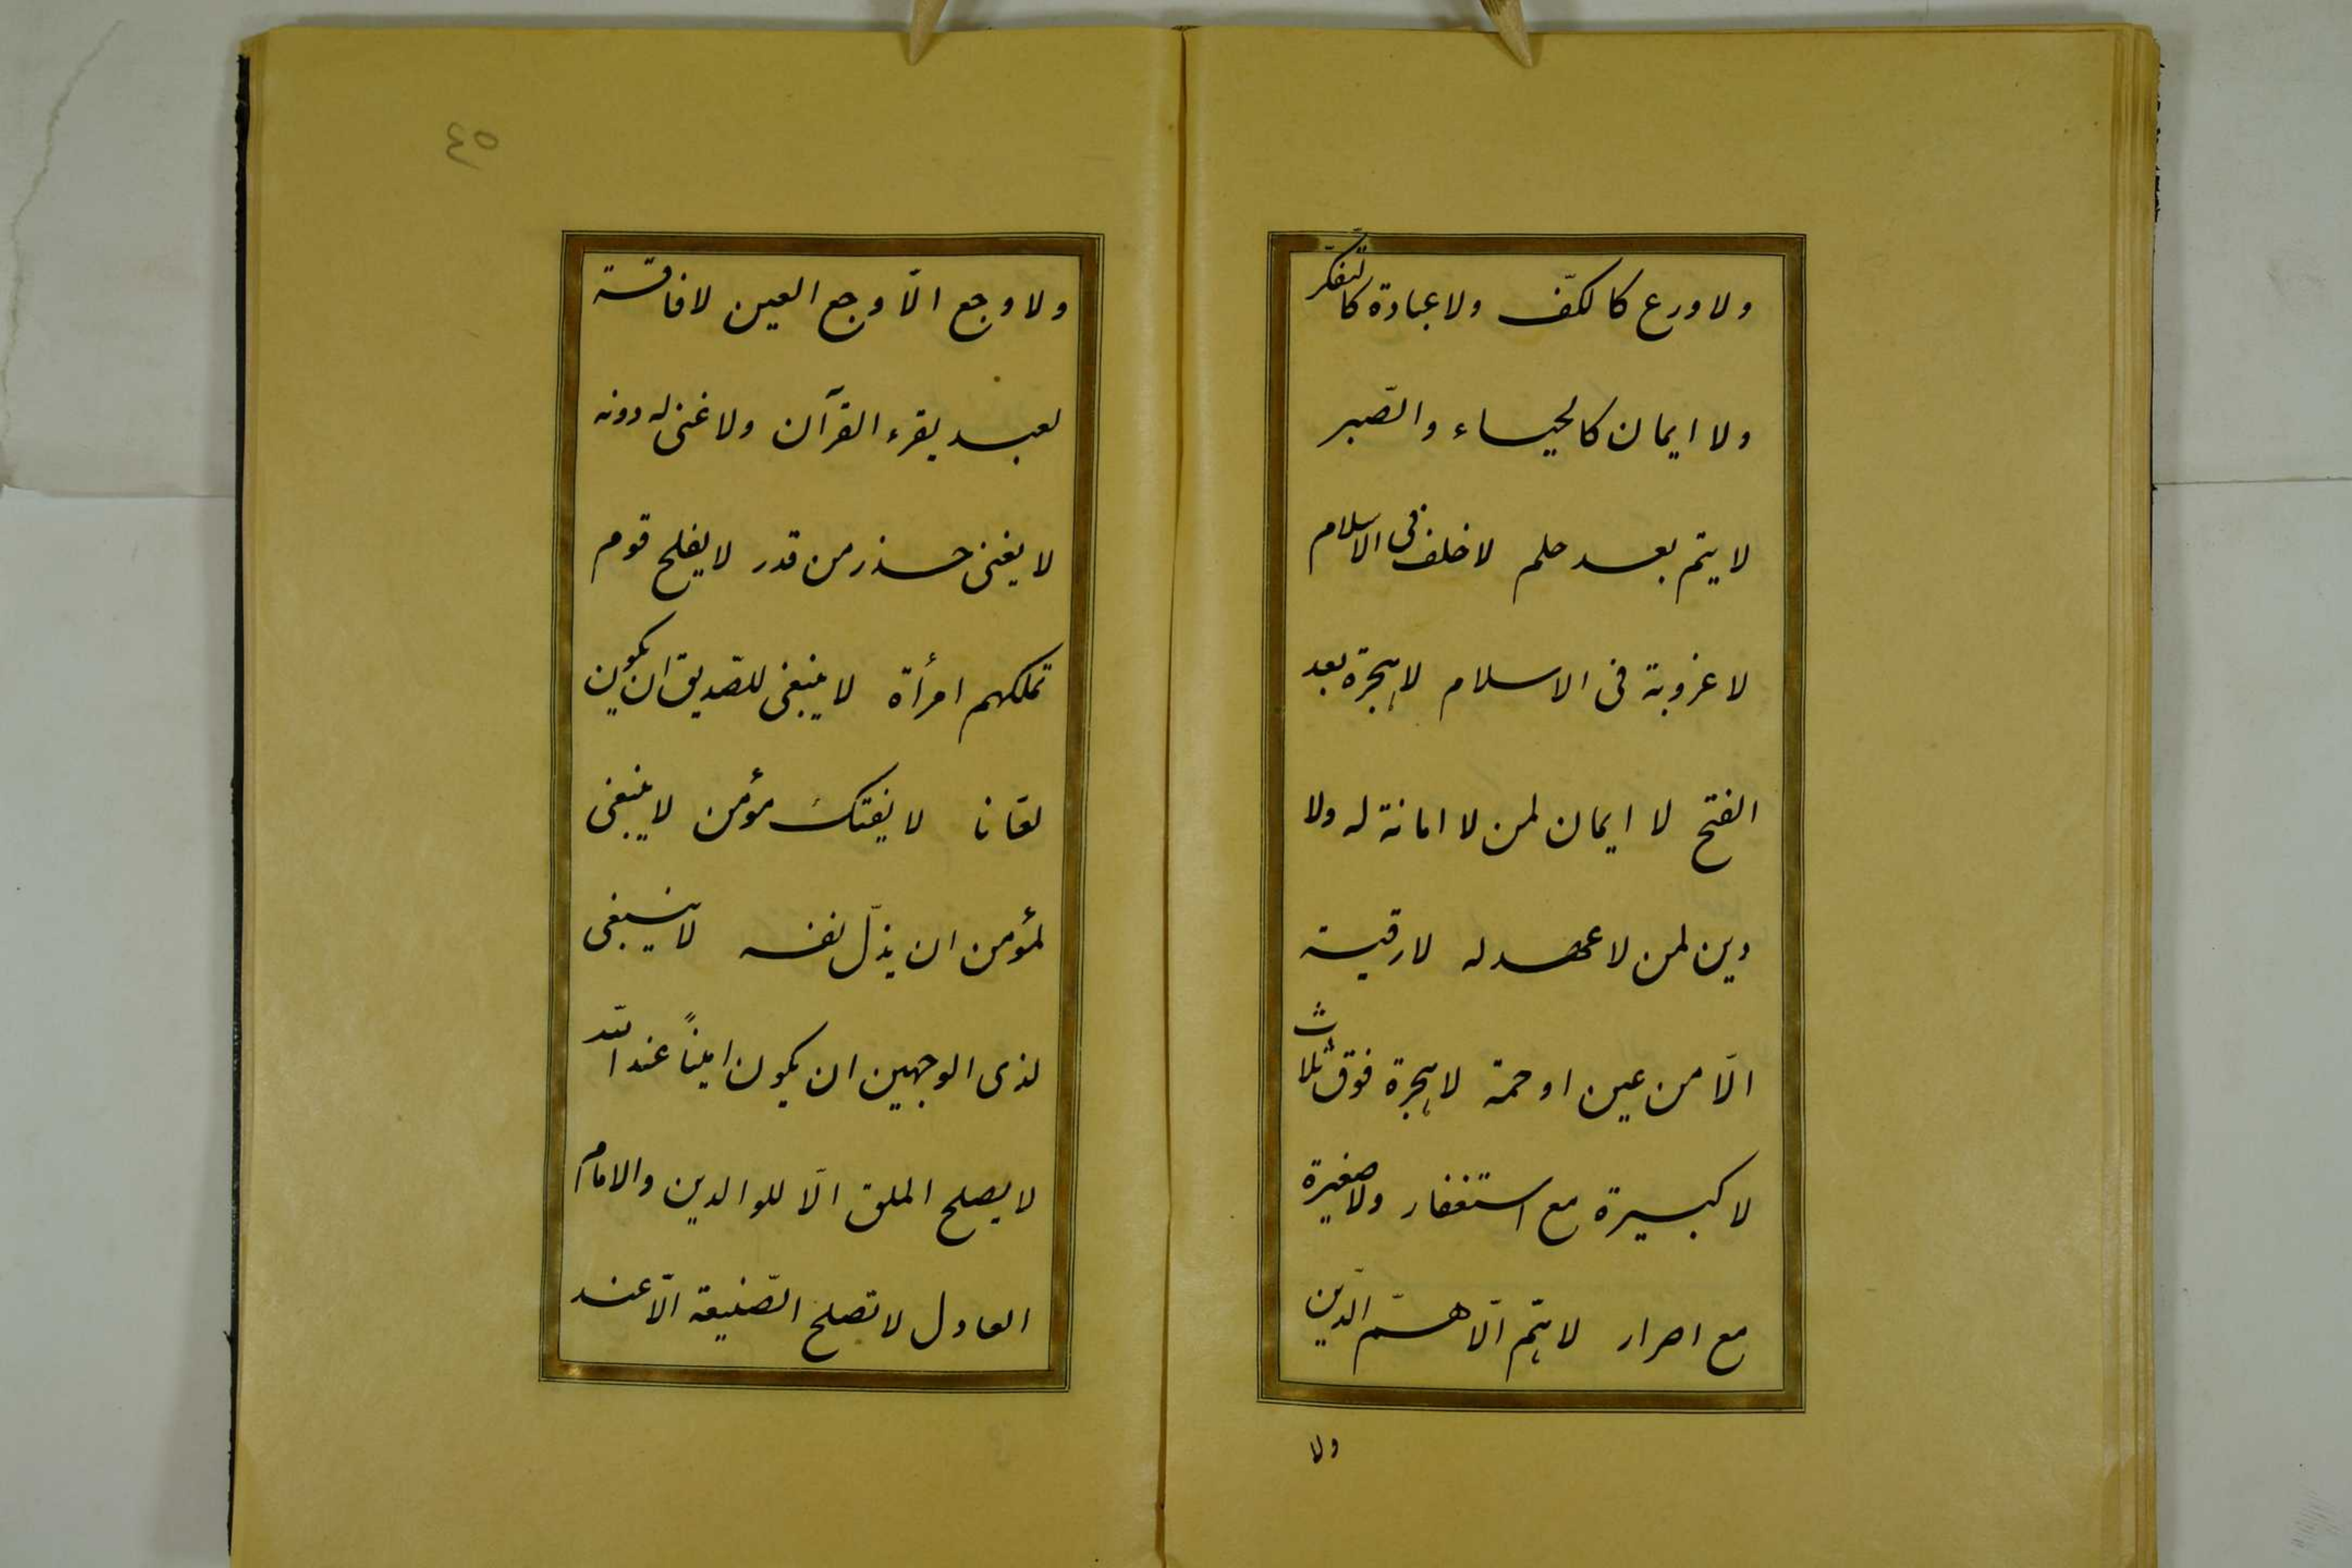 ولا ورع كالكفّ ولا عبادة كالتّفكّر
ولا ايمان كالحياء والصّبر
لا يتم بعد حلم لا خلف فى الاسلام
لا غروبة فى الاسلام لا هجرة بعد
الفتح لا ايمان لمن لا امانة له ولا
دين لمن لا عهد له لا رقية
الّا من عين او حمة لا هجرة فوق ثلاث
لا كبيرة مع استغفار ولا صغيرة
مع اصرار لا همّ الّا همّ الدّين
ولا
٤٥
ولا وجع الّا وجع العين لا فاقة
لعبد يقرء القرآن ولا غنى له دونه
لا يغنى حذر من قدر لا يفلح قوم
تملكهم امرأة لا ينبغى للصّديق ان يكون
لعّانا لا يفتك مؤمن لا ينبغى
لمؤمن ان يذلّ نفسه لا ينبغى
لذى الوجهين ان يكون اميناً عند الله
لا يصلح الملق الّا للوالدين والامام
العادل لا تصلح الصّنيعة الّا عند